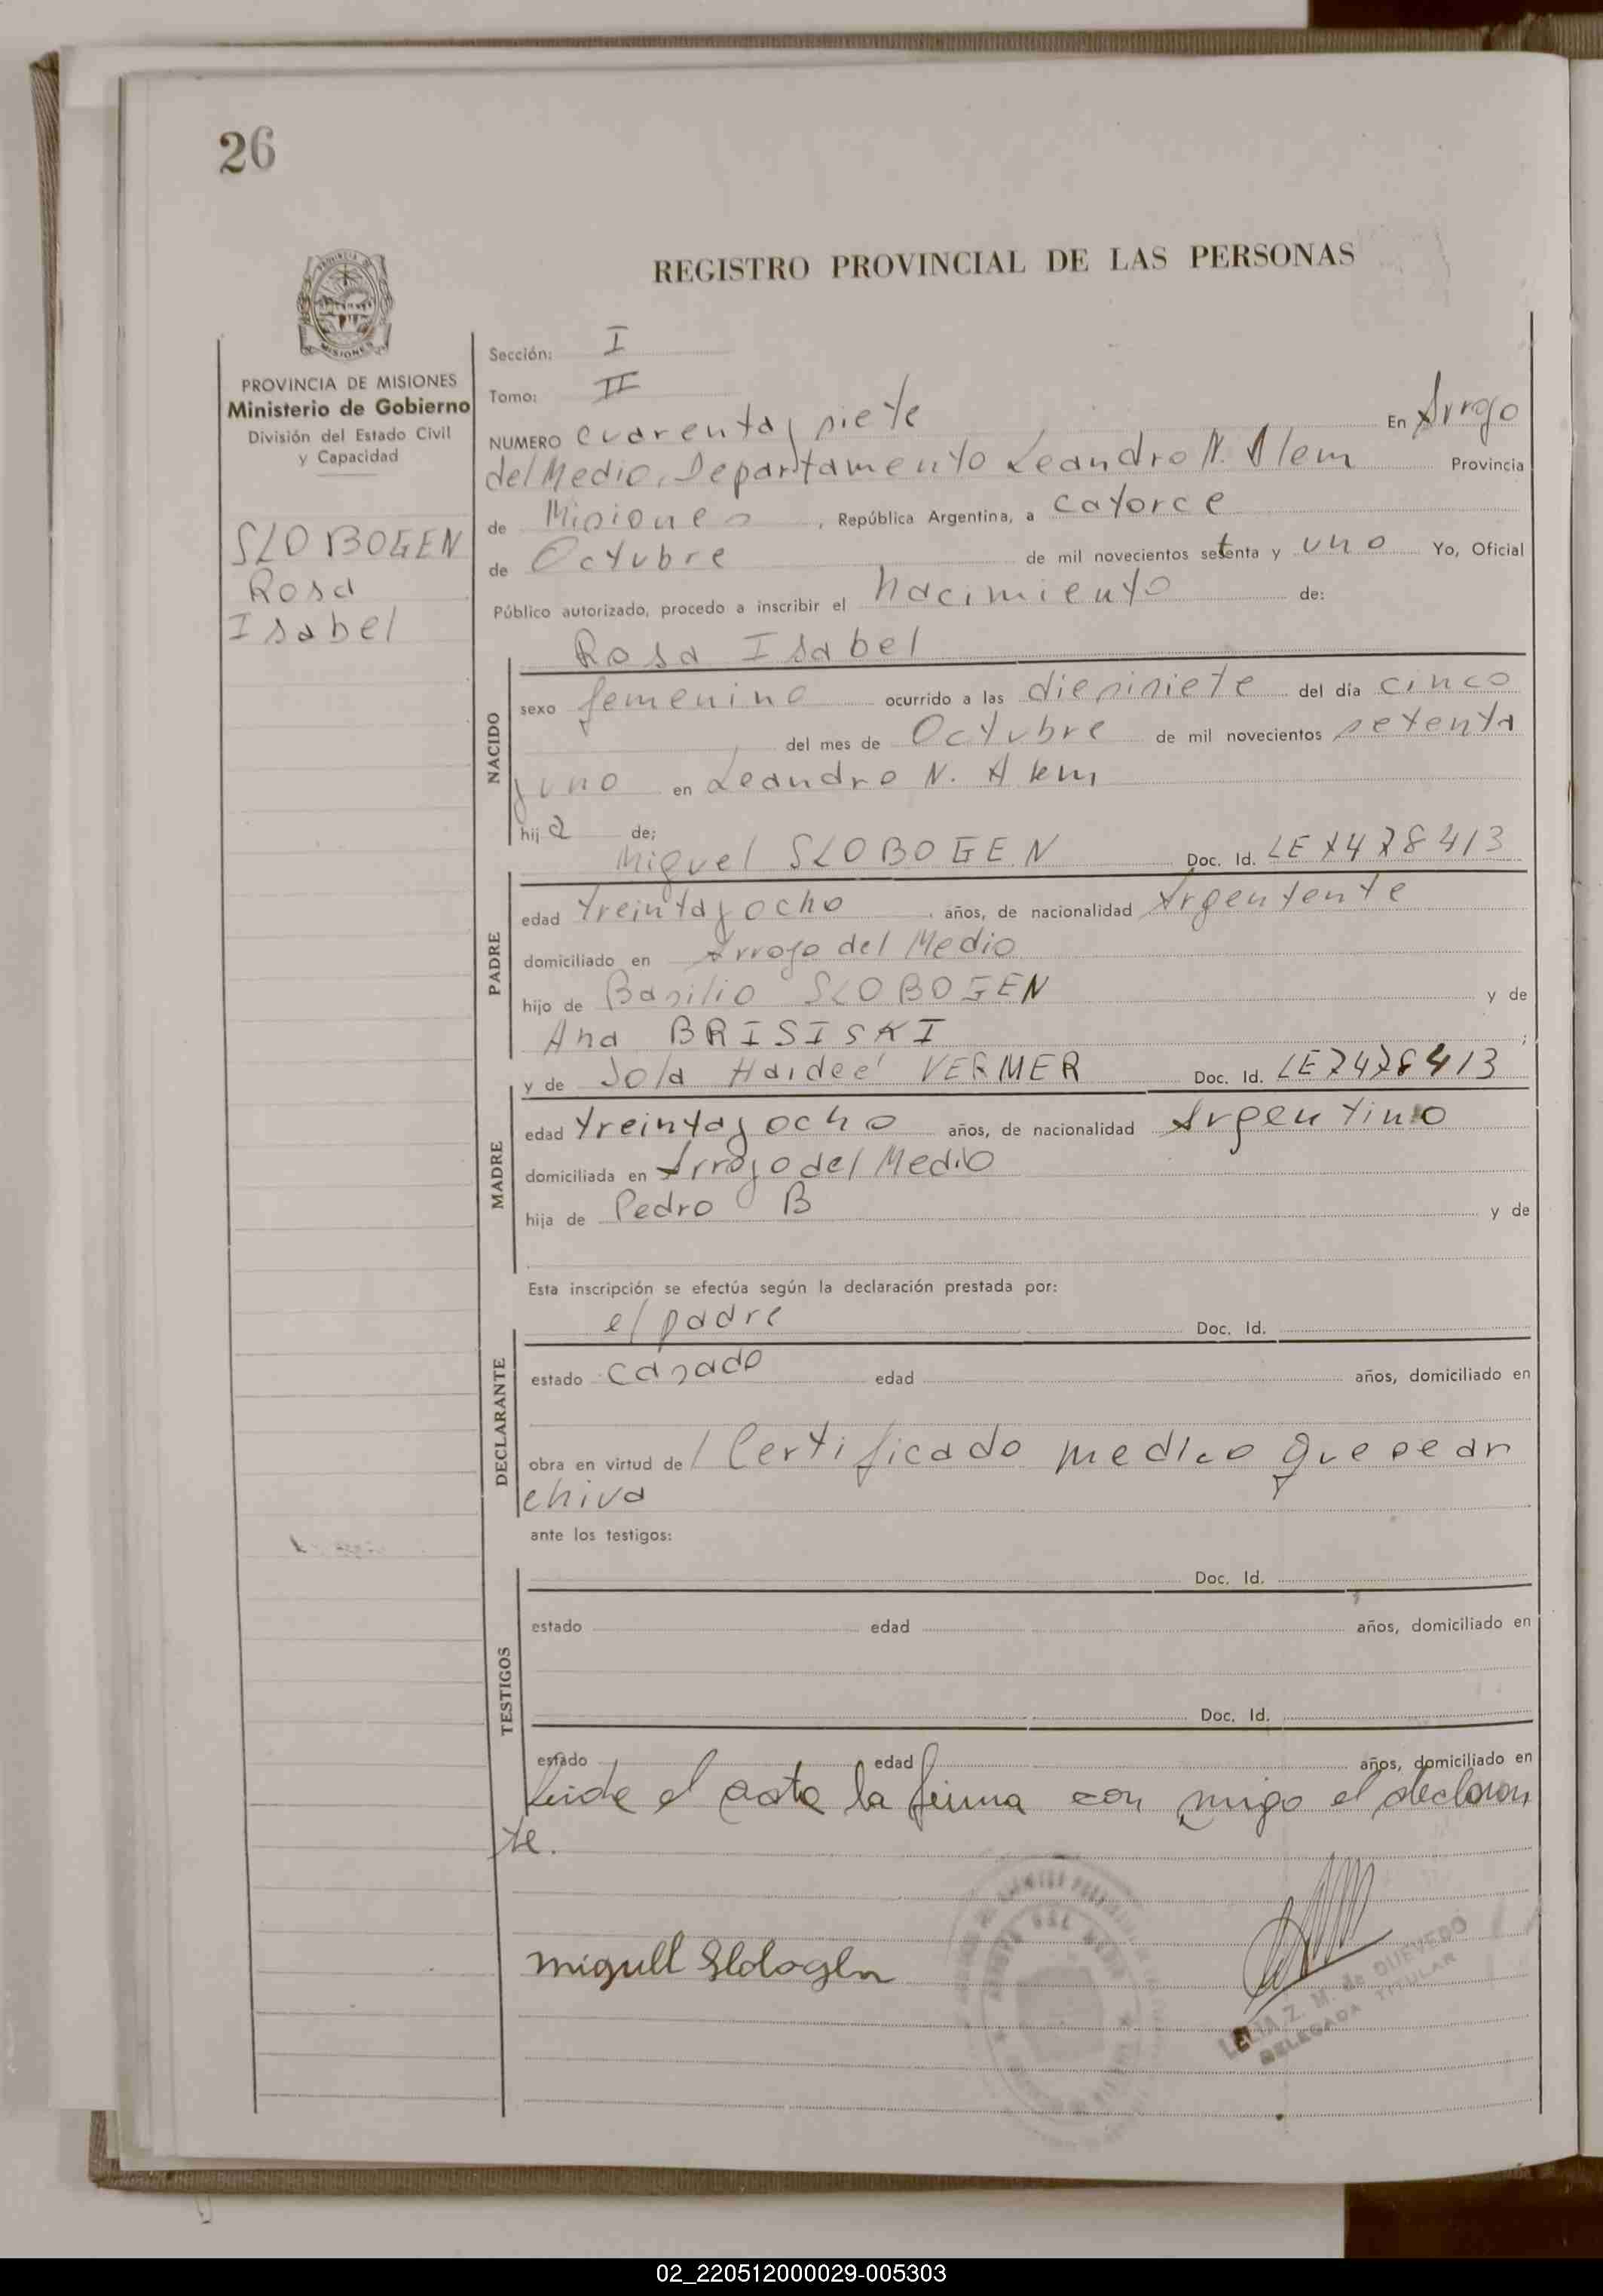 26
REGISTRO PROVINCIAL DE LAS PERSONAS
MISIONES
PROVINCIA DE MISIONES
Ministerio de Gobierno
División del Estado Civil
y Capacidad
SLOBOGEN
Rosa
Isabel
Sección: I
Tomo: II
NUMERO cuarenta y siete En Arroyo
del Medio, Departamento Leandro N. Alem Provincia
de Misiones, República Argentina, a catorce
de Octubre de mil novecientos setenta y uno Yo, Oficial
Público autorizado, procedo a inscribir el nacimiento de:
Rosa Isabel
NACIDO
sexo femenino ocurrido a las diesisiete del día cinco
del mes de Octubre de mil novecientos setenta
y uno en Leandro N. Alem
hija de;
Miguel SLOBOGEN Doc. Id. LE 7478413
PADRE
edad treinta y ocho años, de nacionalidad Argentente
domiciliado en Arroyo del Medio
hijo de Basilio SLOBOGEN y de
Ana BRISISKI ;
y de Sola Haideé VERMER Doc. Id. LE7478413
MADRE
edad treinta y ocho años, de nacionalidad Argentino
domiciliada en Arroyo del Medio
hija de Pedro B y de
Esta inscripción se efectúa según la declaración prestada por:
el padre Doc. Id.
DECLARANTE
estado casado edad años, domiciliado en
obra en virtud del Certificado medico que se ar
chiva
ante los testigos:
Doc. Id.
TESTIGOS
estado edad años, domiciliado en
Doc. Id.
estado edad años, domiciliado en
Leida el acta la firma con migo el declaran
te.
Miguel
ARROYO DEL MEDIO
LELIA Z. M. de QUEVEDO
DELEGADA TITULAR
02_220512000029-005303